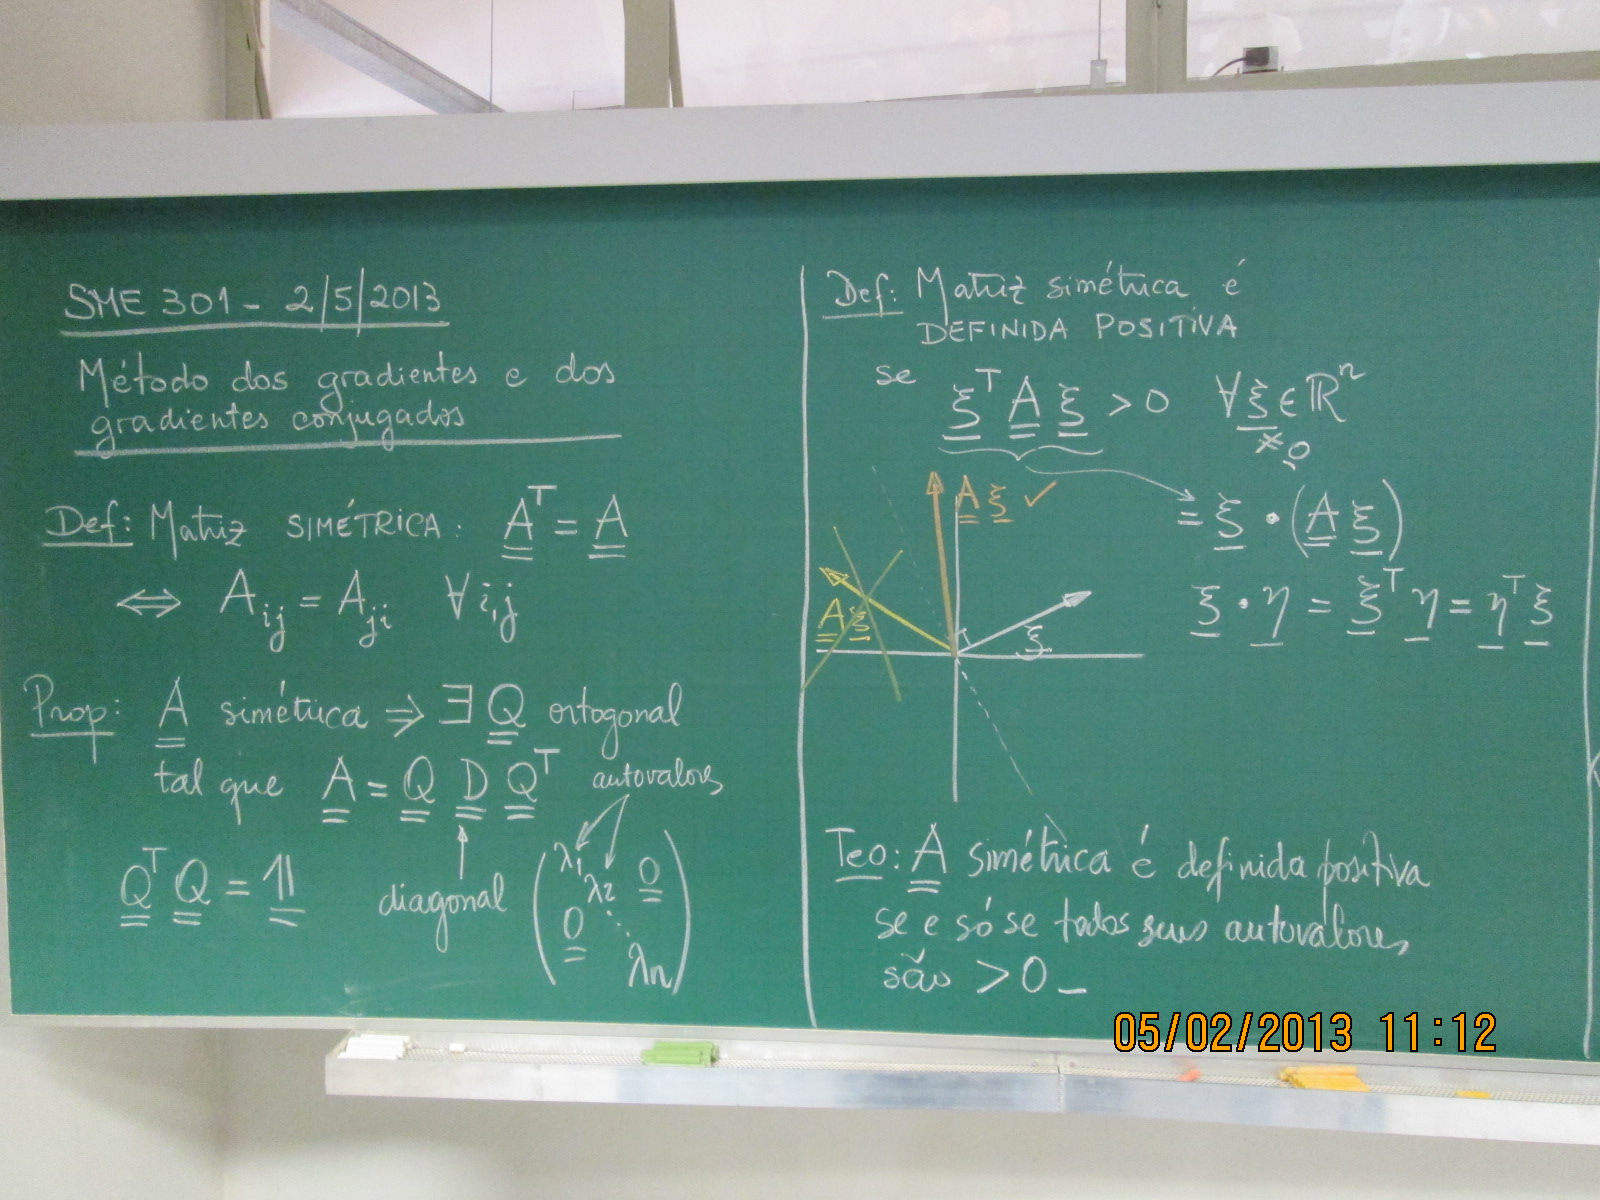 SME 301 - 2/5/2013
Método dos gradientes e dos
gradientes conjugados
Def: Matriz SIMÉTRICA: A^T = A
⟺ A_ij = A_ji ∀ i,j
Prop: A simétrica ⇒ ∃ Q ortogonal
tal que A = Q D Q^T autovalores
Q^T Q = 𝟙 diagonal
λ1
λ2 0
0 ⋱
λn
Def: Matriz simétrica é
DEFINIDA POSITIVA
se ξ^T A ξ > 0 ∀ ξ ∈ ℝ^n
≠ 0
A ξ ✓
= ξ • (A ξ)
A ξ
ξ
ξ • η = ξ^T η = η^T ξ
Teo: A simétrica é definida positiva
se e só se todos seus autovalores
são > 0
05/02/2013 11:12